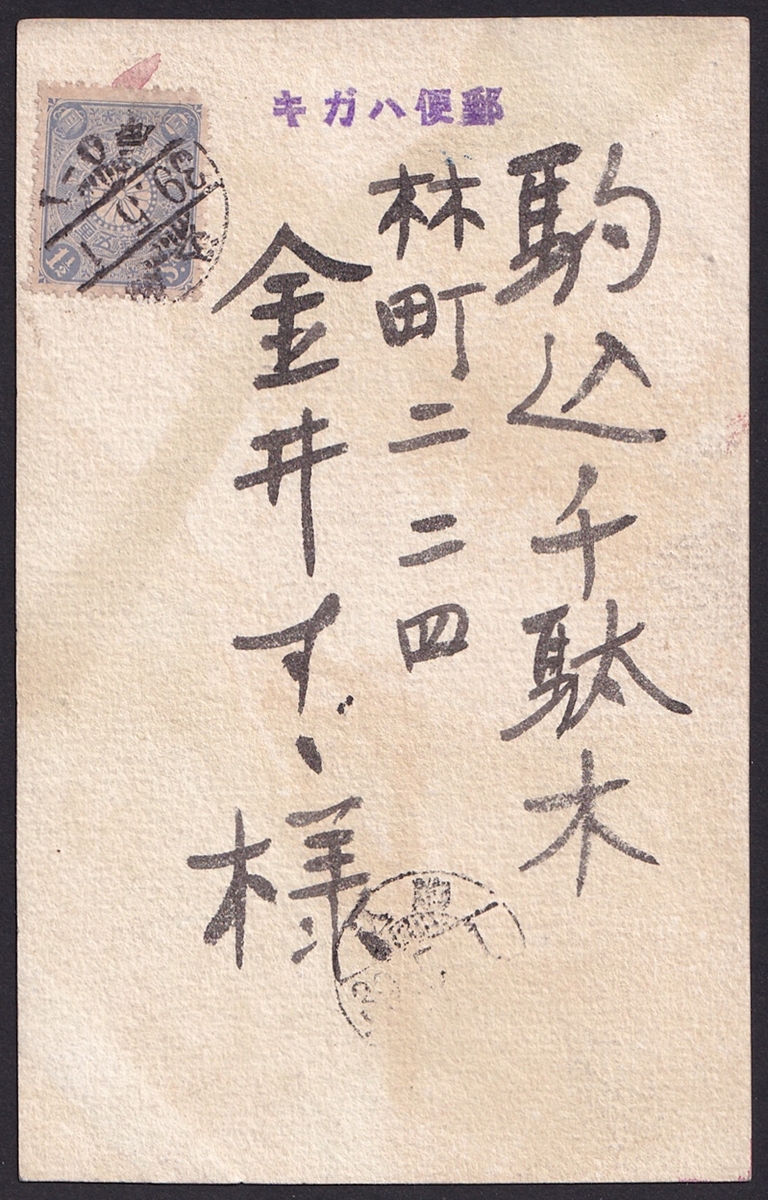 キガハ便郵
駒込千駄木
林町二二四
金井すゞ様
39
5
1½